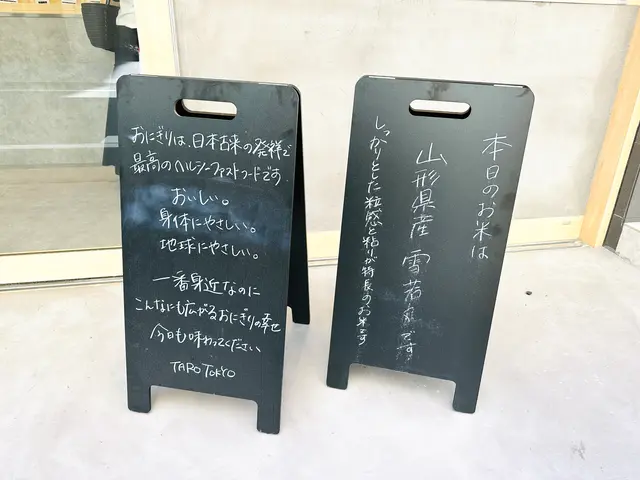 おにぎりは、日本古来の発祥で
最高のヘルシーファストフードです
おいしい。
身体にやさしい。
地球にやさしい。
一番身近なのに
こんなにも広がるおにぎりの幸せ
今日も味わってください
TARO TOKYO
本日のお米は
山形県産 雪若丸です
しっかりとした粒感と粘りが特長のお米です